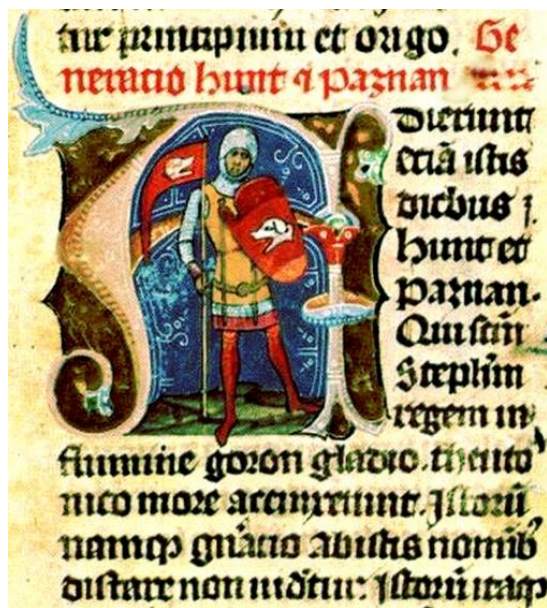 tur principium et origo. Ge
neratio hunt ⁊ paznan
Adierunt
eciā istis
diebus ⁊
hunt et
paznan.
Qui scm̄
Stephm̄
regem in
flumine goron gladio. theuto
nico more accinxerunt. Istorū
namqꝫ gnācio ab istis nomībꝫ
distare non uidr̄tur: Istorū itaqꝫ